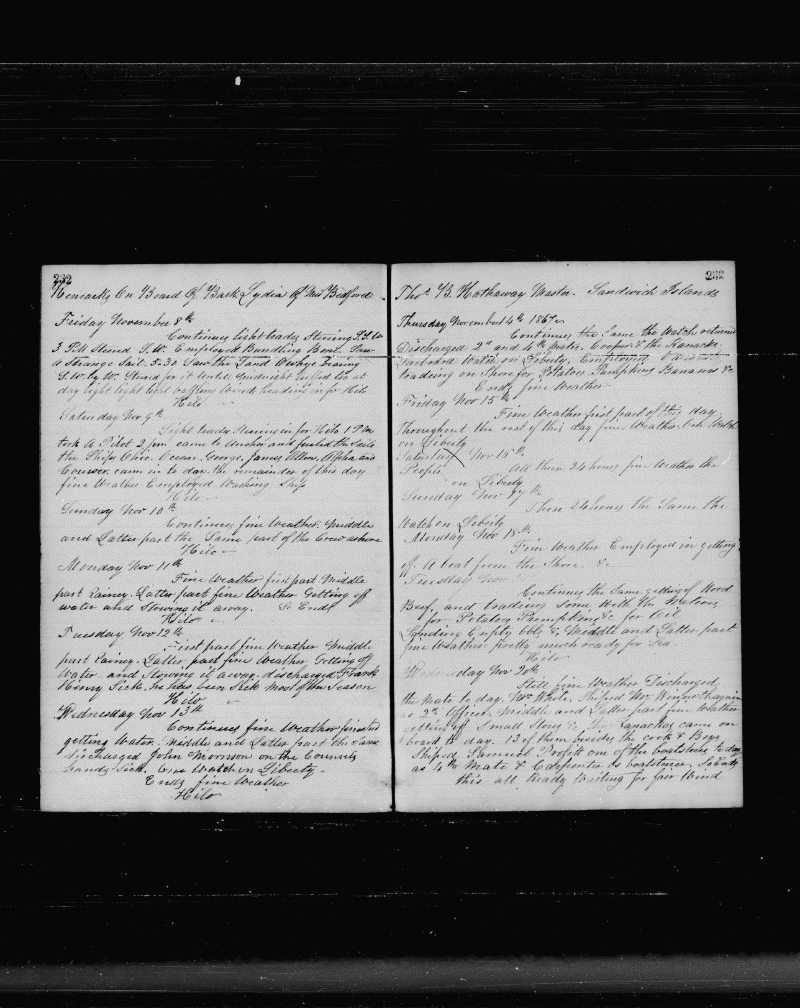 232
Remarks On Board Of Bark Lydia Of New Bedford
Friday November 8th
Continues light trades Stering S.S.W
3 P.M Steerd S.W. Employed Bundling Bone. Saw
a Strange Sail. 3.30 Saw the Land Owhye bearing
S.W. by W. Steerd for it until midnight luffed too at
day light light light baffling winds heading in for Hilo
Hilo
Saturday Nov 9th
Light trades Stering in for Hilo. 1 P.M
took A Pilot 2 pm came to Anchor and furled the Sails
the Ships Ohio. Ocean. George, James Allen, Alpha and
Courser. came in to day. the remainder of this day
fine Weather Employed Washing Ship
Hilo
Sunday Nov 10th
Continues fine Weather. Middle
and Latter part the Same part of the Crew ashore
Hilo
Monday Nov 11th
Fine Weather first part Middle
part Rainey. Latter part fine Weather Getting off
water and Stowing it away. So Ends
Hilo
Tuesday Nov 12th
First part fine Weather Middle
part Rainey. Latter part fine Weather Getting off
Water and Stowing it away. discharged Frank
Henry Sick. he has been Sick most of the Season
Hilo
Wednesday Nov 13th
Continues fine Weather finished
getting Water. Middle and Latter part the Same
discharged John Morrison on the Counsuls
hands Sick. One Watch on Liberty.
Ends fine Weather
Hilo
233
Thos. B. Hathaway Master. Sandwich Islands
Thursday November 14th 1867
Continues the Same the Watch returned
Discharged 2d and 4th mates. Cooper & the Kanacks
Larboard Watch on Liberty. Employed
trading on Shore for Potatoes Pumpkins Bananas &c
Ends fine Weather
Friday Nov 15th
Fine Weather first part of this day
Throughout the rest of this day fine Weather. One Watch
on Liberty
Saturday Nov 16th
All these 24 hours fine Weather the
People on Liberty
Sunday Nov 17th
These 24 hours the Same the
Watch on Liberty
Monday Nov 18th
Fine Weather Employed in getting
off. A boat from the Shore. &c
Tuesday Nov
Continues the Same getting of Wood
Beef. and trading Some With the Natives
for Potatoes Pumpkins &c for Oil
Landing Empty bbls & Middle and Latter part
fine Weather pretty much ready for Sea.
Hilo
Wednesday Nov 20th
Still fine Weather Discharged
the Mate to day. Mr. Shiped Mr. again
as 2d Officer, Middle and Latter part fine Weather
getting off Small Stores &c the Kanackas came on
board to day. 13 of them besides the cook & Boys
Shiped Samuel Profett one of the boatsteers to day
as 4th Mate & Carpenter as boatsteerer. So Ends
this all Ready Waiting for fair Wind